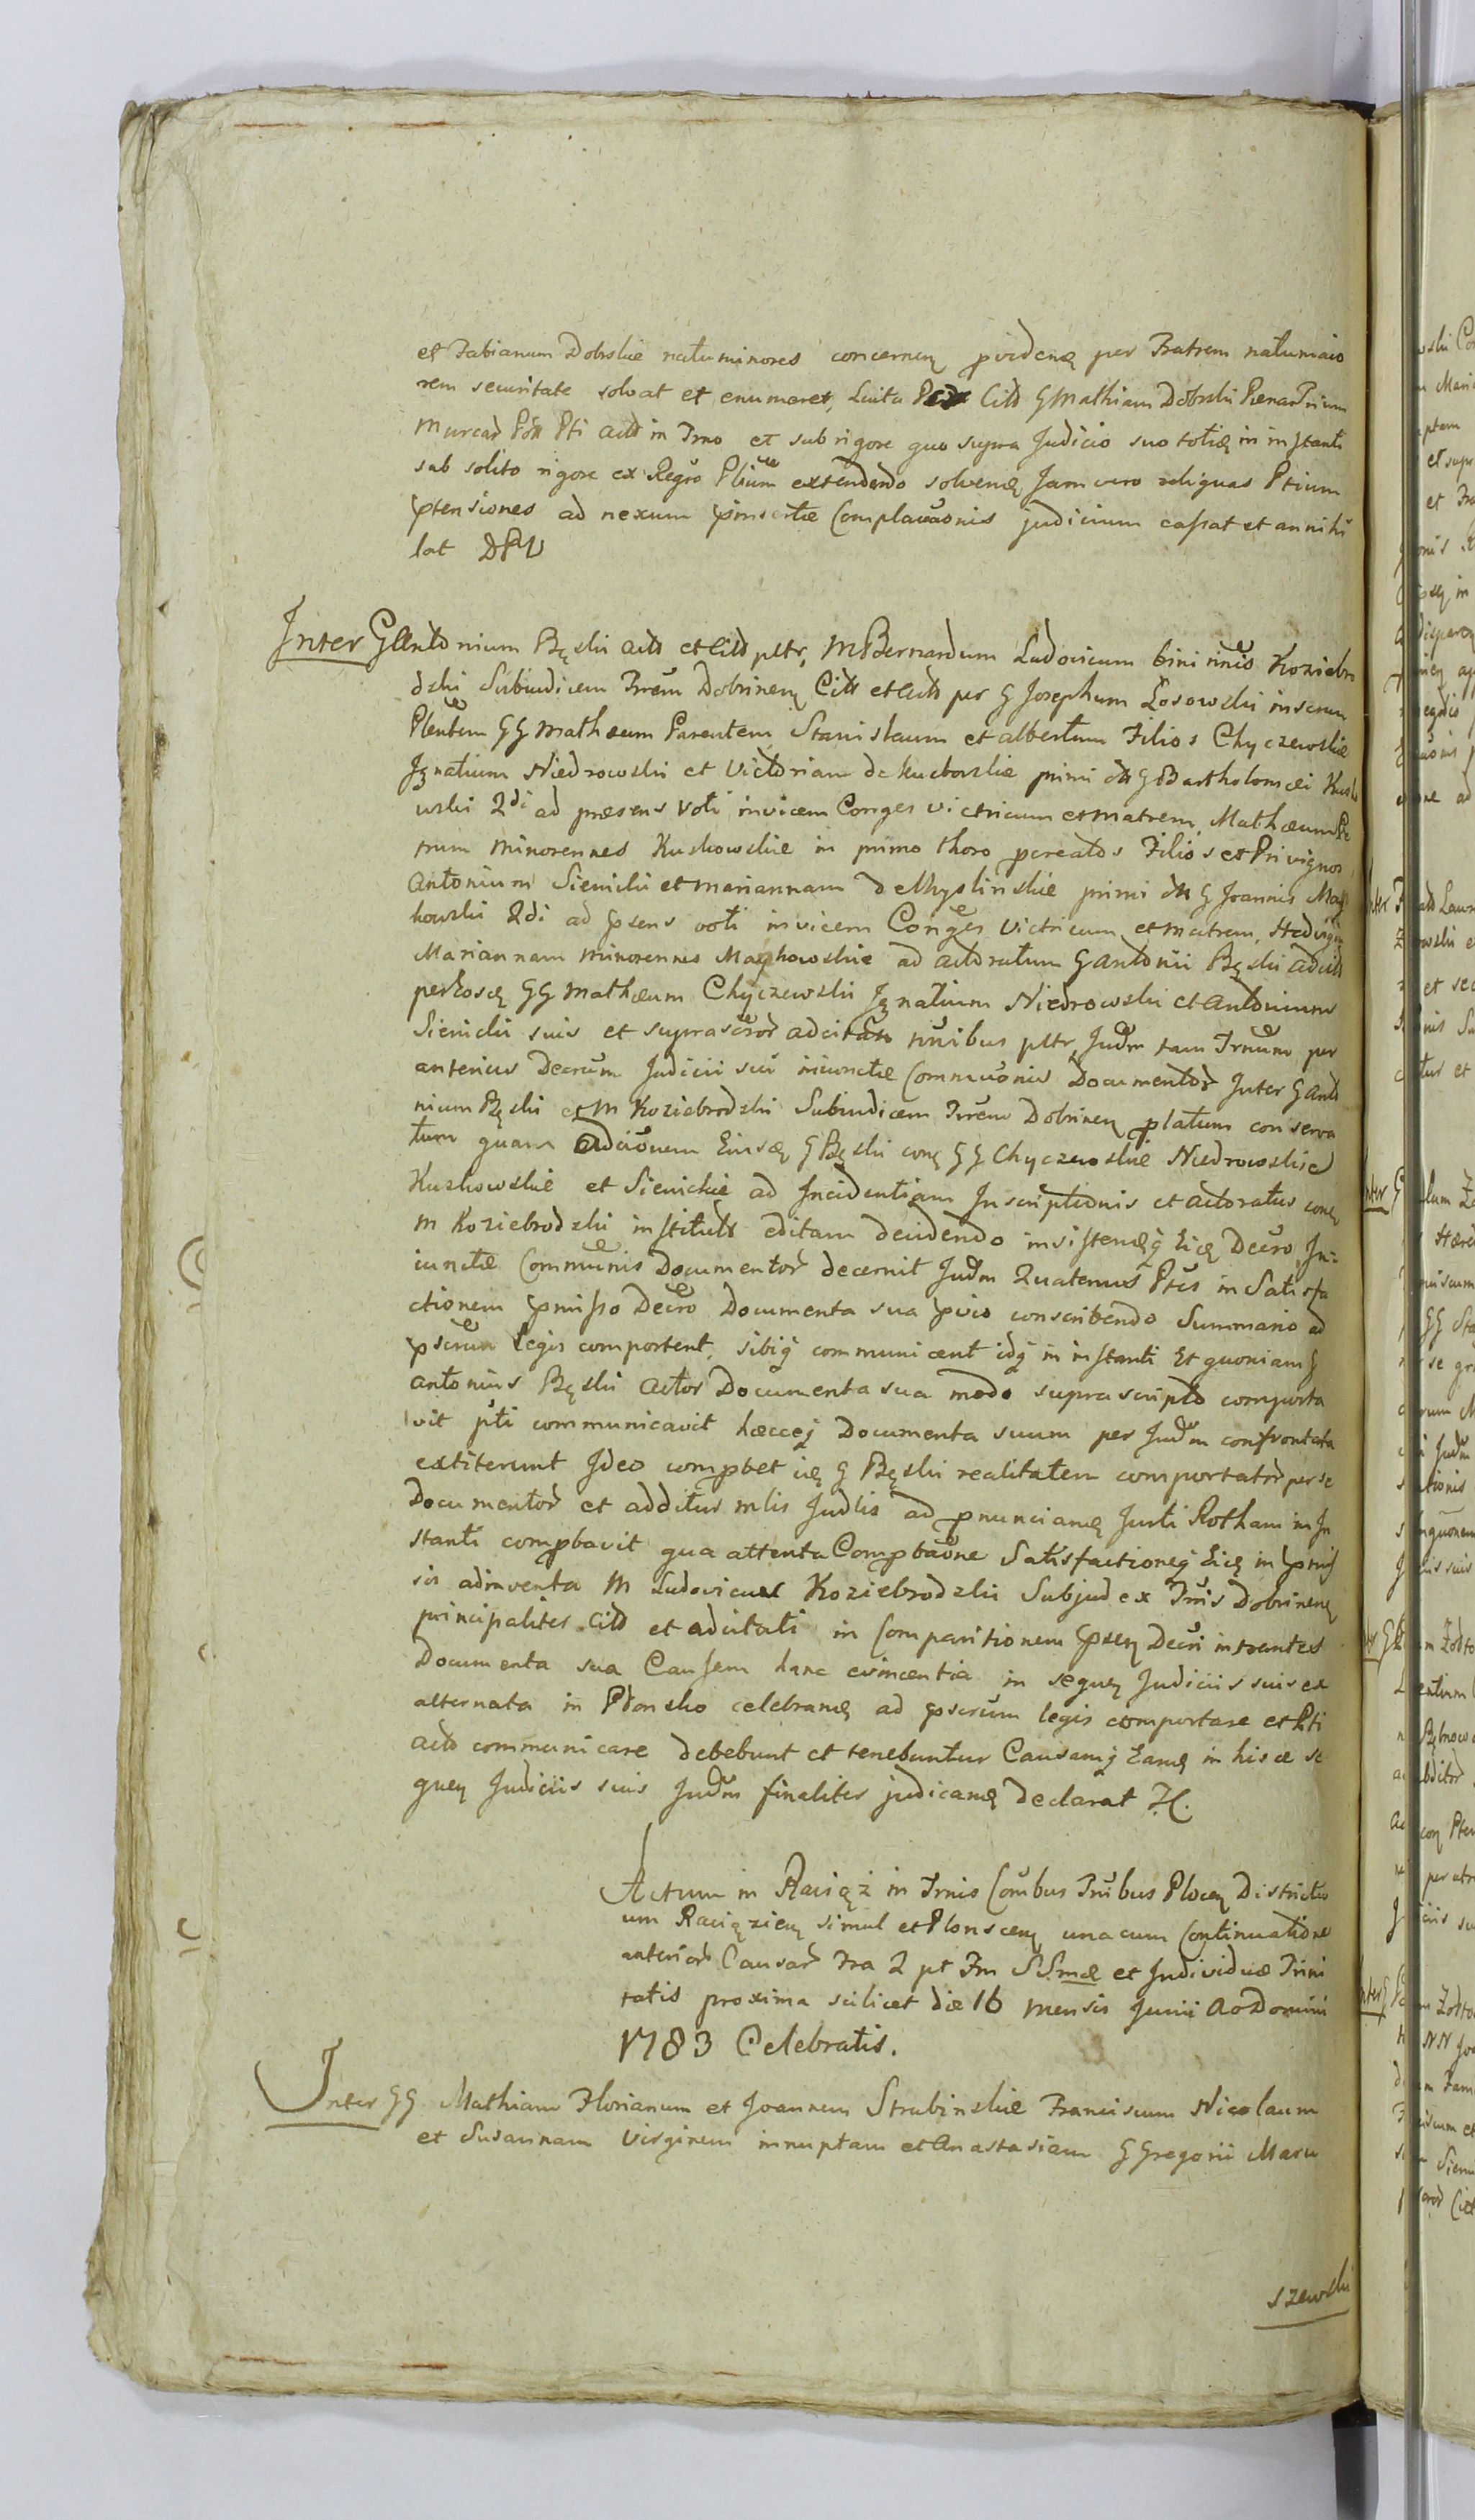 et Fabianum Dobrskie natu minores concernen providen per Fratrem natu maio
rem securitate solvat et enumeret, Luita Citt G Mathiam Dobrski
Murcas Pti Actt in Trno et sub rigore quo supra Judicio suo toties in instanti
sub solito rigore ex Regro extendendo solvens Jam vero reliquas Ptium
ptensiones ad nexum pinsertæ Complanaonis judicium cassat et annihi
lat DPV
Inter G Antonium Bęski Actt et Citt pltr, M Bernardum Ludovicum bini nnis Koziebro
dzki Subiudicem Trrem Dobrinen Citt et Actt per G Josephum Łosowski inserum
Plentem GG Mathæum Parentem Stanislaum et Albertum Filios Chyczewskie
Ignatium Niedrowski et Victoriam de Kuchowskie primi G Bartholomæi Kusko
wski 2di ad præsens Voti invicem Conges victricum et matrem, Mathæum Pe
trum Minorennes Kuskowskie in primo thoro pcreatos Filios et Privignos
Antonium Sienicki et Mariannam de Myslinskie primi G Joannis May
kowski 2di ad psens voti invicem Conges Victricum et matrem, Hedvigim
Mariannam minorennes Maykowskie ad actoratum G Antonii Bęski adcitt
per eosd GG Mathæum Chyczewski Ignatium Niedrowski et Antonium
Sienicki suis et suprascror adcitatt nnibus pltr, Judm tam Trnum per
anterius Decrum Judicii sui iniunctæ Commuonis Documentor Inter G Anto
nium Bęski et M Koziebrodzki Subiudicem Trrem Dobrinen platum conserva
tum quam Adcionem Eiusd G Bęski con GG Chyczewskie Niedrowskie
Kuskowskie et Sienickie ad Incidentiam Inscriptionis et actoratus con
M Koziebrodzki institutt editam decidendo insistendq Eid Decro, In-
iunctæ Commuonis Documentor decernit Judm Quatenus Ptes in Satisfa
ctionem pmisso Decro Documenta sua pvio conscribendo Summario ad
pscrum legis comportent, sibiq communicent idq in instanti Et quoniam G
Antonius Bęski Actor Documenta sua modo supra scripto comporta
vit pti communicavit hæcceq Documenta suum per Judm confrontata
extiterunt Ideo comprobet id G Bęski realitatem comportator per se
Documentor et additus mlis Judlis ad pnuncian Justi Rotham in In
stanti comprobavit qua attenta Comprobaone Satisfactioneq Eid in pmis
sis adinventa M Ludovicus Koziebrodzki Subjudex Trris Dobrinen
principaliter Citt et adcitati in Comparitionem psen Decri intrantes
Documenta sua Causam hanc evincentia in sequen Judiciis suis ex
alternata in Płonsko celebran ad pscrum legis comportare et Pti
Actt communicare debebunt et tenebuntur Causamq Eand in hisce se
quen Judiciis suis Judm finaliter judicand declarat H.
Actum in Raciąż in Trnis Conbus Tribus Plocen Districtu
um Raciążien simul et Plonscen unacum Continuatione
anterior Causar Fra 2 pt Fm SSmæ et Individuæ Trini
tatis proxima scilicet die 16 Mensis Junii Ao Domini
1783 Celebratis.
Inter GG Mathiam Florianum et Joannem Strubinskie Franciscum Nicolaum
et Susannam Virginem innuptam et Anastasiam G Gregorii Maru
szewski